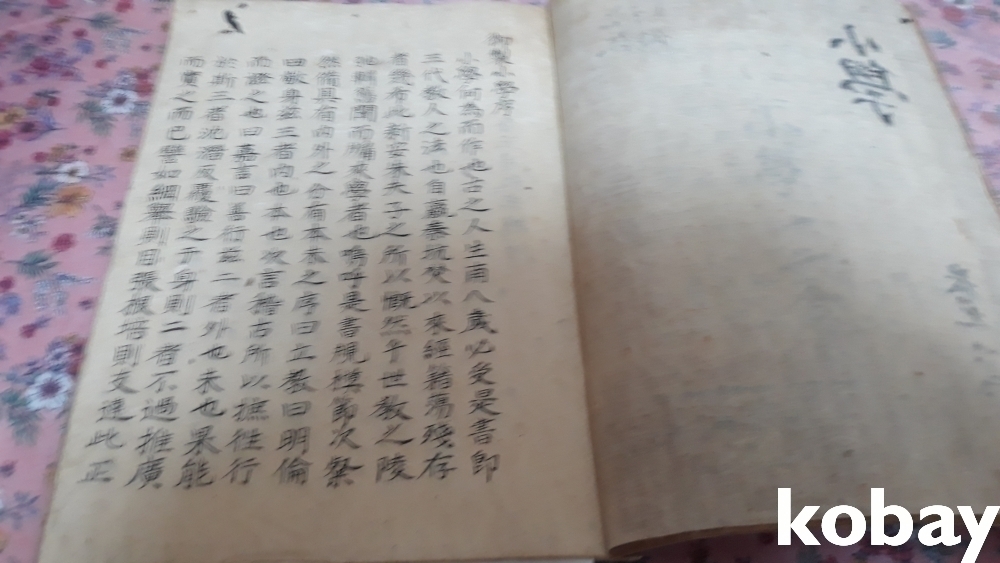 御製小學序
小學何為而作也古之人生甫八歲必受是書即
三代教人之法也自嬴秦坑焚以來經籍蕩殘存
者幾希此新安朱夫子之所以慨然乎世教之陵
弛輯舊聞而牖來學者也嗚呼是書規模節次粲
然備具有內外之分有本末之序曰立教曰明倫
曰敬身玆三者內也本也次言稽古所以摭往行
而證之也曰嘉言曰善行玆二者外也末也果能
於斯三者沈潛反覆驗之于身則二者不過推廣
而實之而已譬如綱擧則目張根培則支達此正
小
kobay